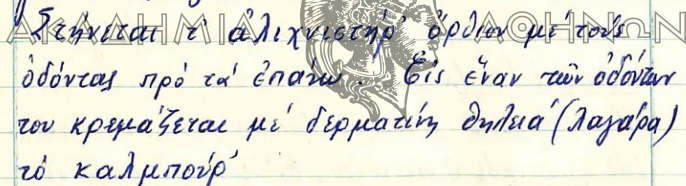 ΑΚΑΔΗΜΙΑ ΑΘΗΝΩΝ
Στήνεται τ' ἀλιχνιστήρ' ὄρθιον μέ τούς
ὀδόντας πρό τά ἐπάνω. Εἰς ἕναν τῶν ὀδόντων
του κρεμάζεται μέ δερματίνη θηλειά (λαγάρα)
τό καλμπούρ'